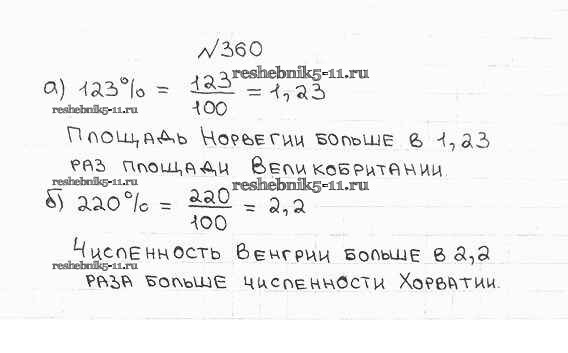 №360
а) 123% = 123/100 = 1,23
reshebnik5-11.ru
reshebnik5-11.ru
Площадь Норвегии больше в 1,23
раз площади Великобритании.
reshebnik5-11.ru
reshebnik5-11.ru
б) 220% = 220/100 = 2,2
Численность Венгрии больше в 2,2
reshebnik5-11.ru
раза больше численности Хорватии.